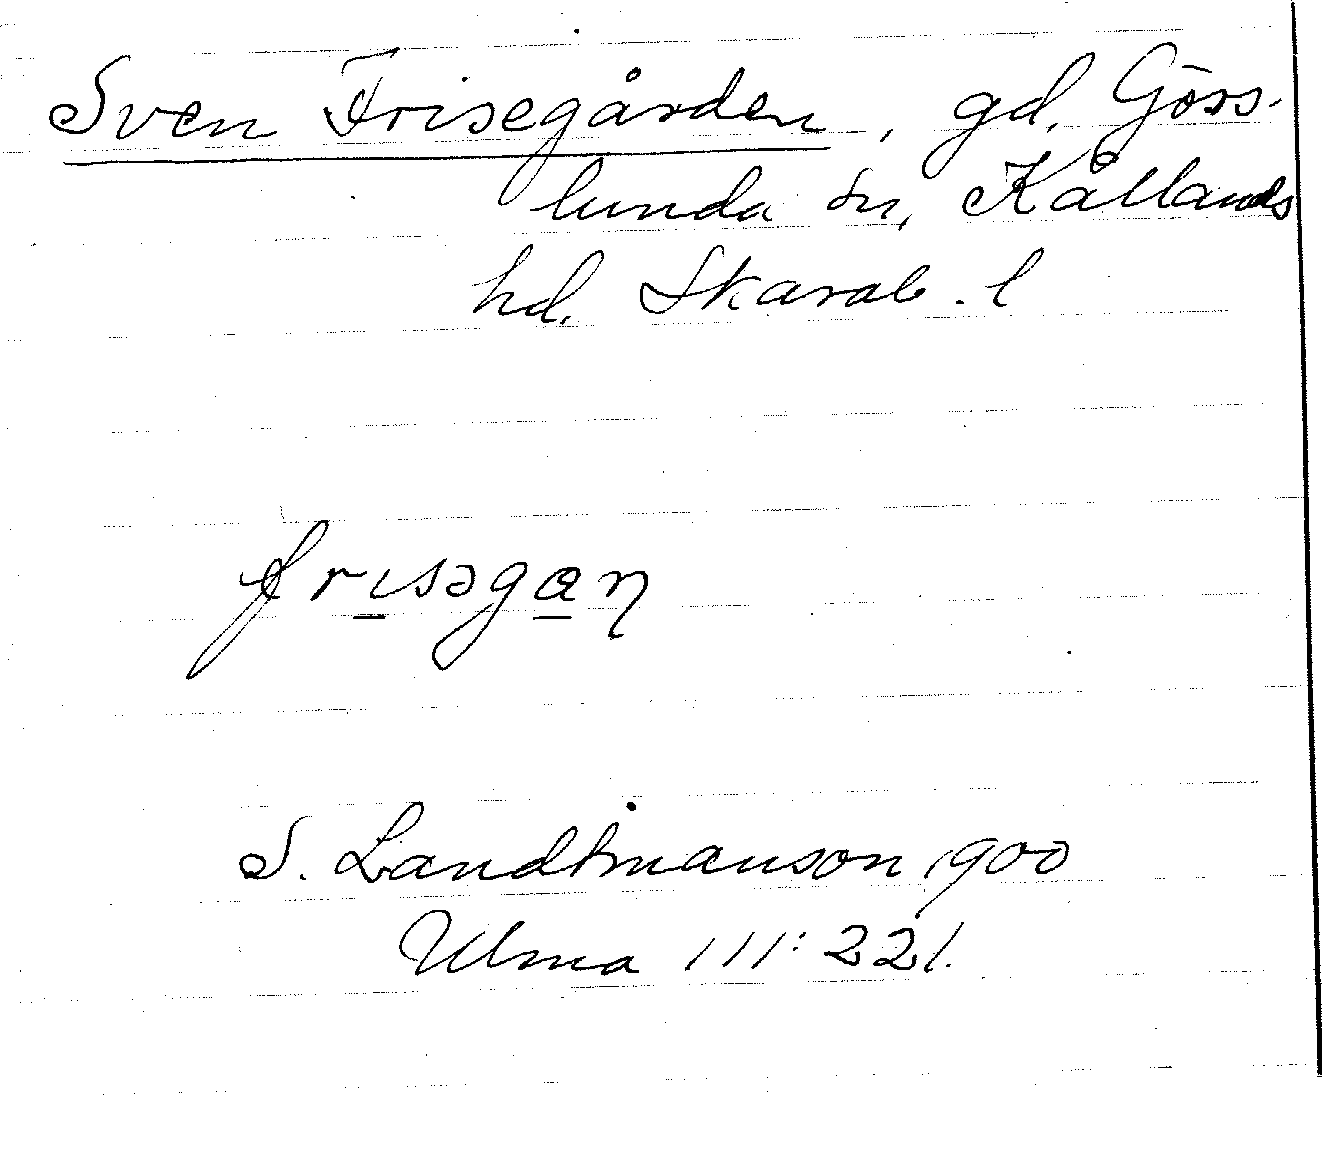 Sven Frisegården, gd. Göss-
lunda sn, Kållands
hd. Skarab. l
frısəgaɳ
S. Landtmanson 1900
Ulma 111:221.